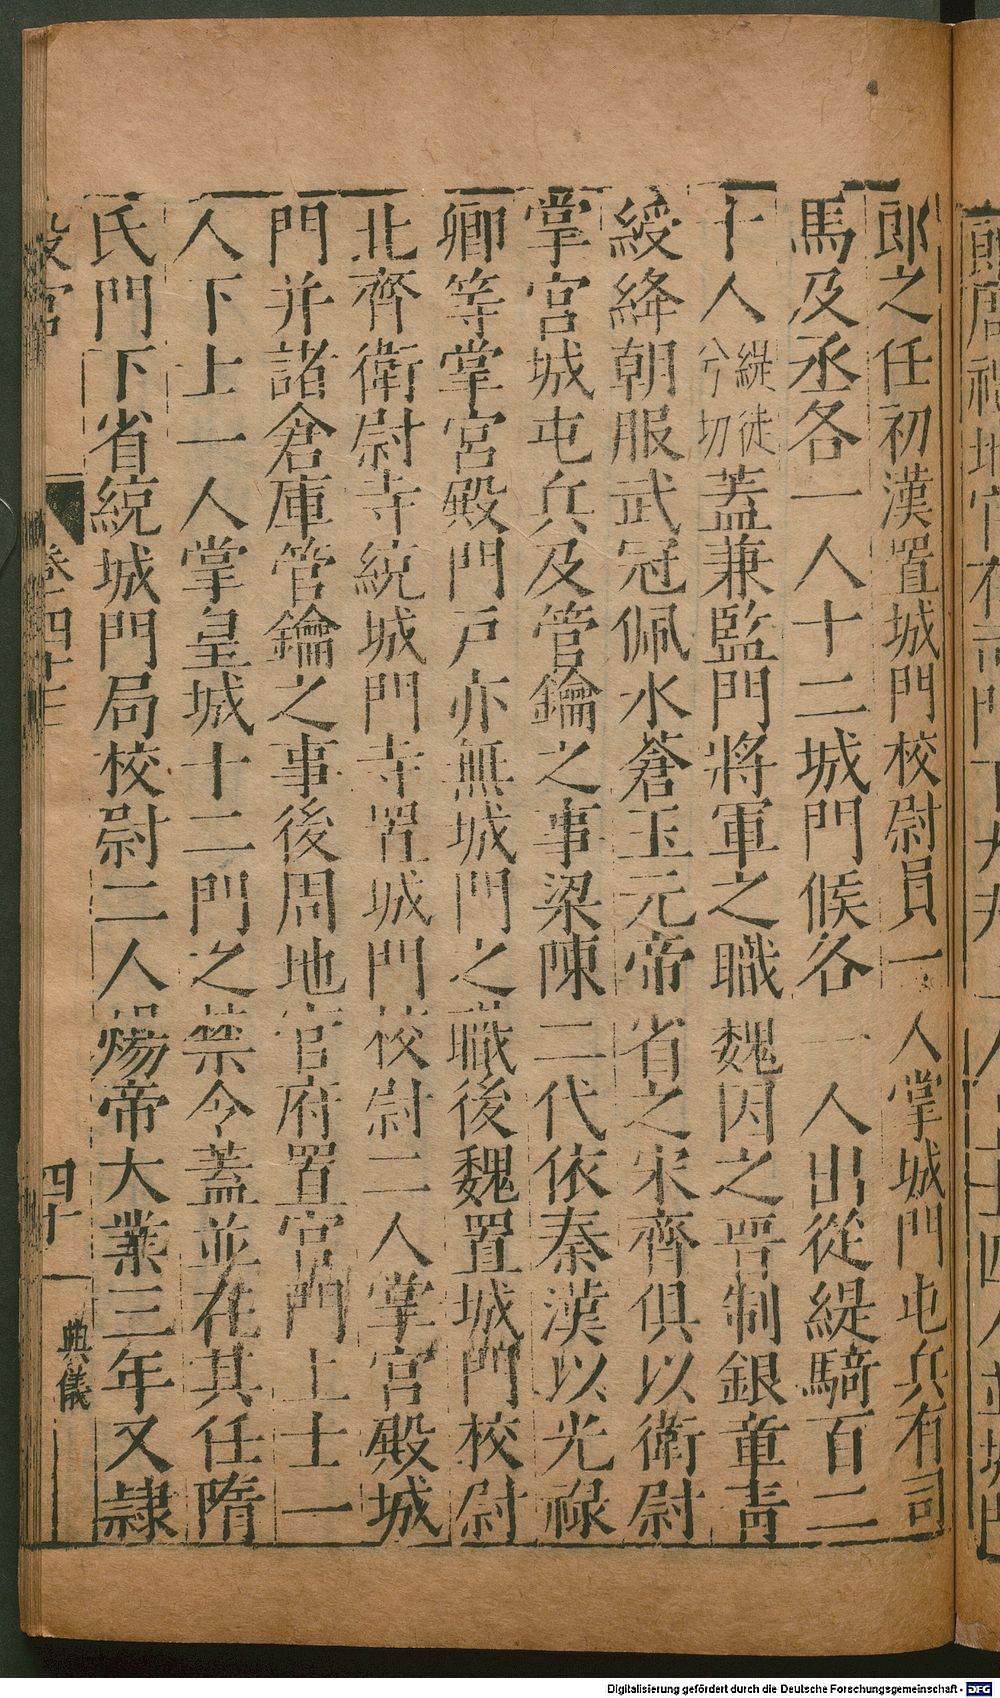 郎之任初漢置城門校尉員一人掌城門屯兵有司
馬及丞各一人十二城門候各一人出從緹騎百二
十人緹徒兮切蓋兼監門將軍之職魏因之晉制銀章青
綬絳朝服武冠佩水蒼玉元帝省之宋齊俱以衛尉
掌宮城屯兵及管鑰之事梁陳二代依秦漢以光祿
卿等掌宮殿門戸亦無城門之職後魏置城門校尉
北齊衛尉寺統城門寺置城門校尉二人掌宮殿城
門并諸倉庫管鑰之事後周地官府置宮門上士一
人下士一人掌皇城十二門之禁令蓋並在其任隋
氏門下省統城門局校尉二人煬帝大業三年又隷
殿宮
卷二四十三
四十
典儀
Digitalisierung gefördert durch die Deutsche Forschungsgemeinschaft - DFG